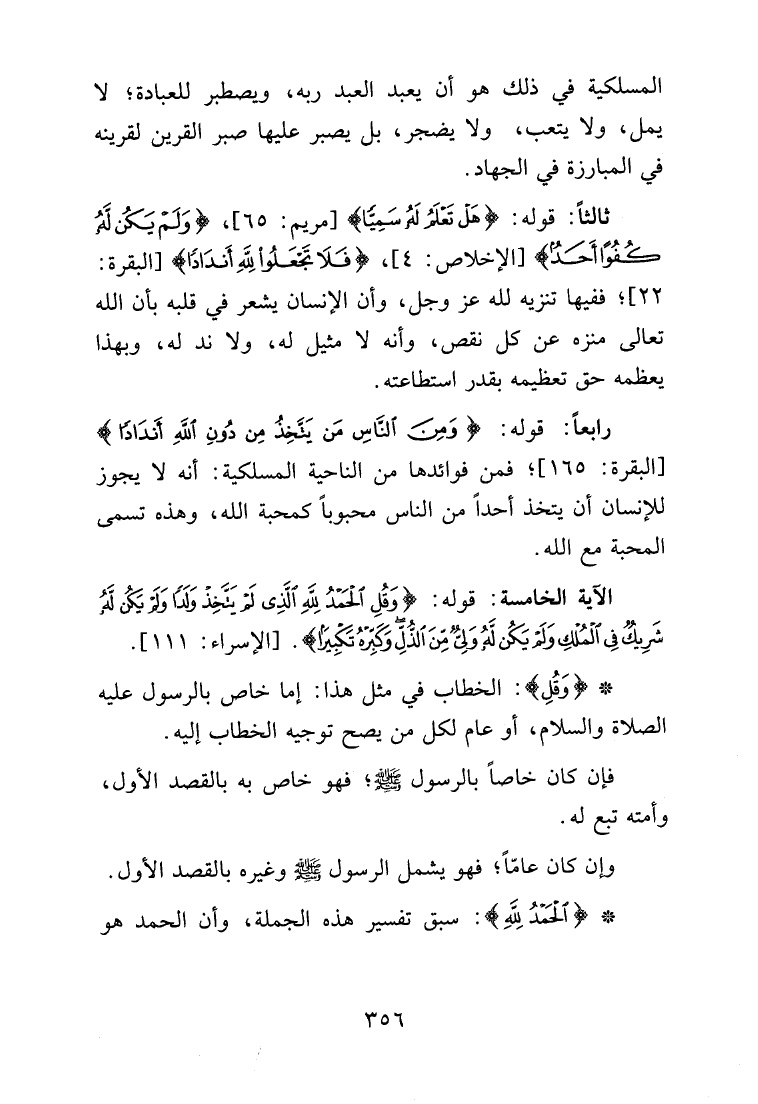 المسلكية في ذلك هو أن يعبد العبد ربه، ويصطبر للعبادة؛ لا
يمل، ولا يتعب، ولا يضجر، بل يصبر عليها صبر القرين لقرينه
في المبارزة في الجهاد.
ثالثاً: قوله: ﴿هَلْ تَعْلَمُ لَهُ سَمِيًّا﴾ [مريم: ٦٥]، ﴿وَلَمْ يَكُن لَّهُ
كُفُوًا أَحَدٌ﴾ [الإخلاص: ٤]، ﴿فَلَا تَجْعَلُوا لِلَّهِ أَندَادًا﴾ [البقرة:
٢٢]؛ ففيها تنزيه لله عز وجل، وأن الإنسان يشعر في قلبه بأن الله
تعالى منزه عن كل نقص، وأنه لا مثيل له، ولا ند له، وبهذا
يعظمه حق تعظيمه بقدر استطاعته.
رابعاً: قوله: ﴿وَمِنَ ٱلنَّاسِ مَن يَتَّخِذُ مِن دُونِ ٱللَّهِ أَندَادًا﴾
[البقرة: ١٦٥]؛ فمن فوائدها من الناحية المسلكية: أنه لا يجوز
للإنسان أن يتخذ أحداً من الناس محبوباً كمحبة الله، وهذه تسمى
المحبة مع الله.
الآية الخامسة: قوله: ﴿وَقُلِ ٱلْحَمْدُ لِلَّهِ ٱلَّذِى لَمْ يَتَّخِذْ وَلَدًا وَلَمْ يَكُن لَّهُ
شَرِيكٌ فِى ٱلْمُلْكِ وَلَمْ يَكُن لَّهُ وَلِىٌّ مِّنَ ٱلذُّلِّ وَكَبِّرْهُ تَكْبِيرًا﴾. [الإسراء: ١١١].
* ﴿وَقُلِ﴾: الخطاب في مثل هذا: إما خاص بالرسول عليه
الصلاة والسلام، أو عام لكل من يصح توجيه الخطاب إليه.
فإن كان خاصاً بالرسول ﷺ؛ فهو خاص به بالقصد الأول،
وأمته تبع له.
وإن كان عامّاً؛ فهو يشمل الرسول ﷺ وغيره بالقصد الأول.
* ﴿ٱلْحَمْدُ لِلَّهِ﴾: سبق تفسير هذه الجملة، وأن الحمد هو
٣٥٦